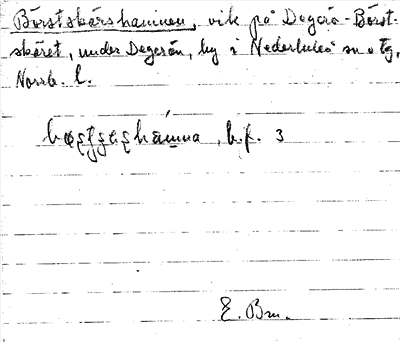 Börstskärshamnen, vik på Degerö-Börst-
skäret, under Degerön, by i Nederluleå sn o tg,
Norrb. l.
b.f. 3
E. Brm.